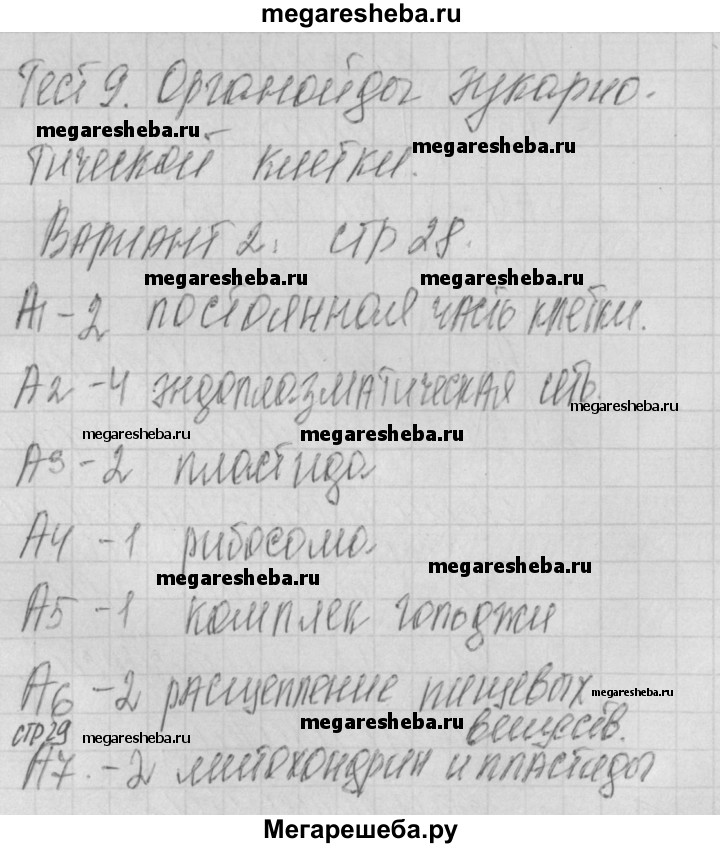 megaresheba.ru
Тест 9. Органойды эукарио-
megaresheba.ru
megaresheba.ru
тической клетки.
Вариант 2. стр 28.
megaresheba.ru megaresheba.ru
А1 - 2 постоянная часть клетки.
А2 - 4 эндоплазматическая сеть.
megaresheba.ru
megaresheba.ru megaresheba.ru
А3 - 2 пластида
А4 - 1 рибосома
megaresheba.ru
megaresheba.ru
А5 - 1 комплек гольджи
А6 - 2 расщепление пищевых
megaresheba.ru
стр 29 megaresheba.ru megaresheba.ru веществ.
А7. - 2 митохондрии и пластиды
Мегарешеба.ру